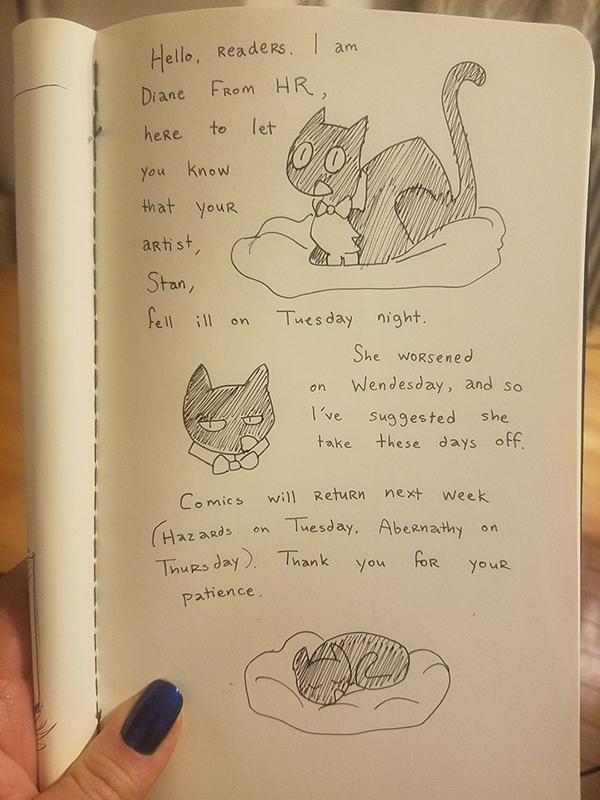 Hello, readers. I am
Diane From HR,
here to let
you know
that your
artist,
Stan,
fell ill on Tuesday night.
She worsened
on Wendesday, and so
I've suggested she
take these days off.
Comics will return next week
(Hazards on Tuesday, Abernathy on
Thursday). Thank you for your
patience.